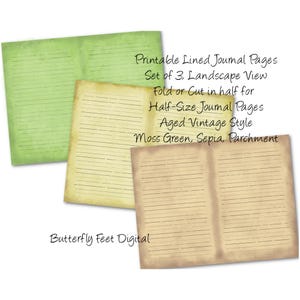 Printable Lined Journal Pages
Set of 3, Landscape View
Fold or Cut in half for
Half-Size Journal Pages
Aged Vintage Style
Moss Green, Sepia, Parchment
Butterfly Feet Digital